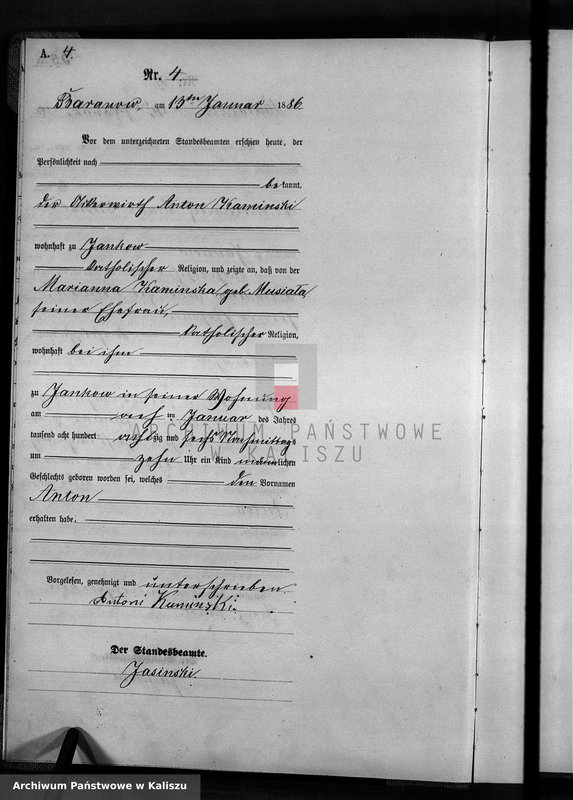 A. 4.
Nr. 4.
Baranow, am 13ten Januar 1886.
Vor dem unterzeichneten Standesbeamten erschien heute, der
Persönlichkeit nach
bekannt,
der Ackerwirth Anton Kaminski
wohnhaft zu Jankow
katholischer Religion, und zeigte an, daß von der
Marianna Kaminska, geb. Musiała,
seiner Ehefrau,
katholischer Religion,
wohnhaft bei ihm
zu Jankow in seiner Wohnung
am ten Januar des Jahres
tausend acht hundert achtzig und sechs Nachmittags
um zehn Uhr ein Kind männlichen
Geschlechts geboren worden sei, welches den Vornamen
Anton
erhalten habe.
Vorgelesen, genehmigt und unterschrieben
Antoni Kaminski.
Der Standesbeamte.
Jasinski.
ARCHIWUM PAŃSTWOWE
W KALISZU
Archiwum Państwowe w Kaliszu